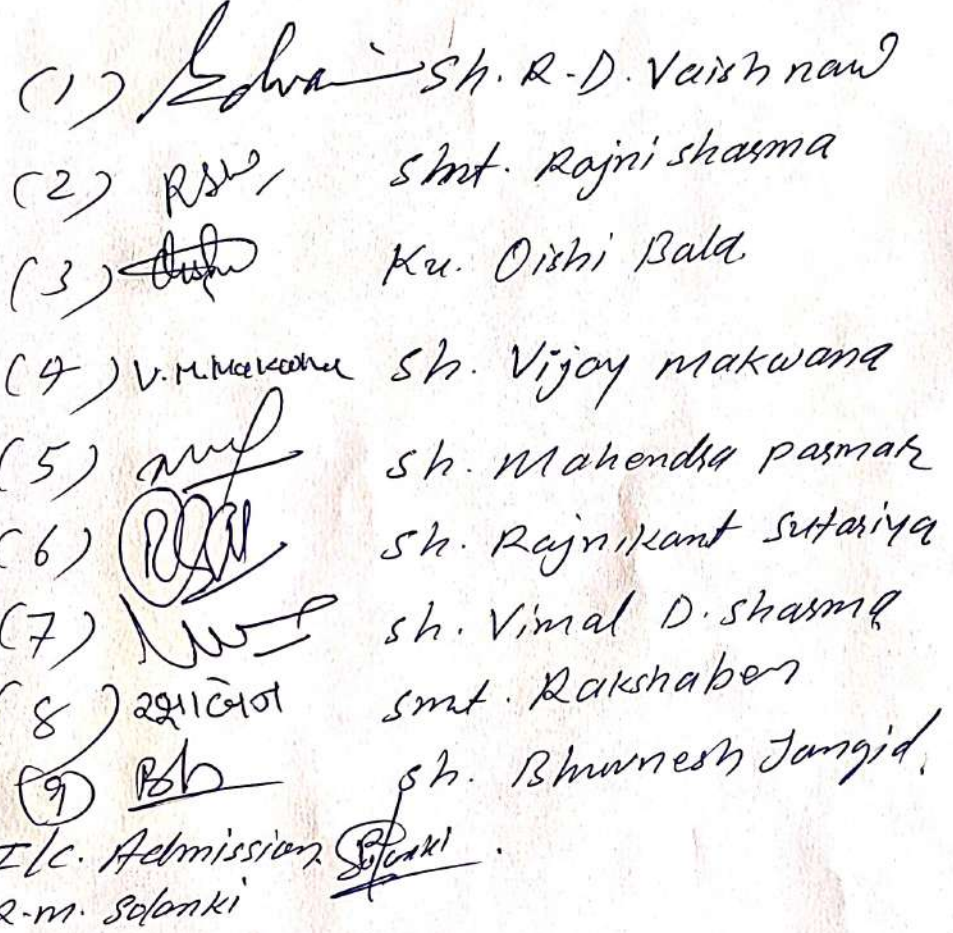 (1) Sh. R.D. Vaishnaw
(2) RSh, Shmt. Rajni sharma
(3) Ku. Oishi Bala.
(4) V.M.Makwana Sh. Vijay makwana
(5) Sh. Mahendra parmar
(6) Sh. Rajnikant Sutariya
(7) Sh. Vimal D. Sharma
(8) રક્ષાબેન Smt. Rakshaben
(9) Bh Sh. Bhuvnesh Jangid.
I/c. Admission Solanki.
R.m. Solanki